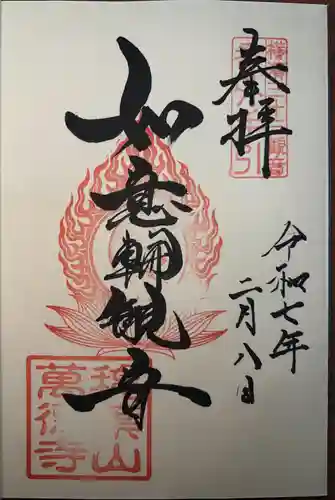 奉拝
令和七年
二月八日
如意輪観音
山
萬徳寺